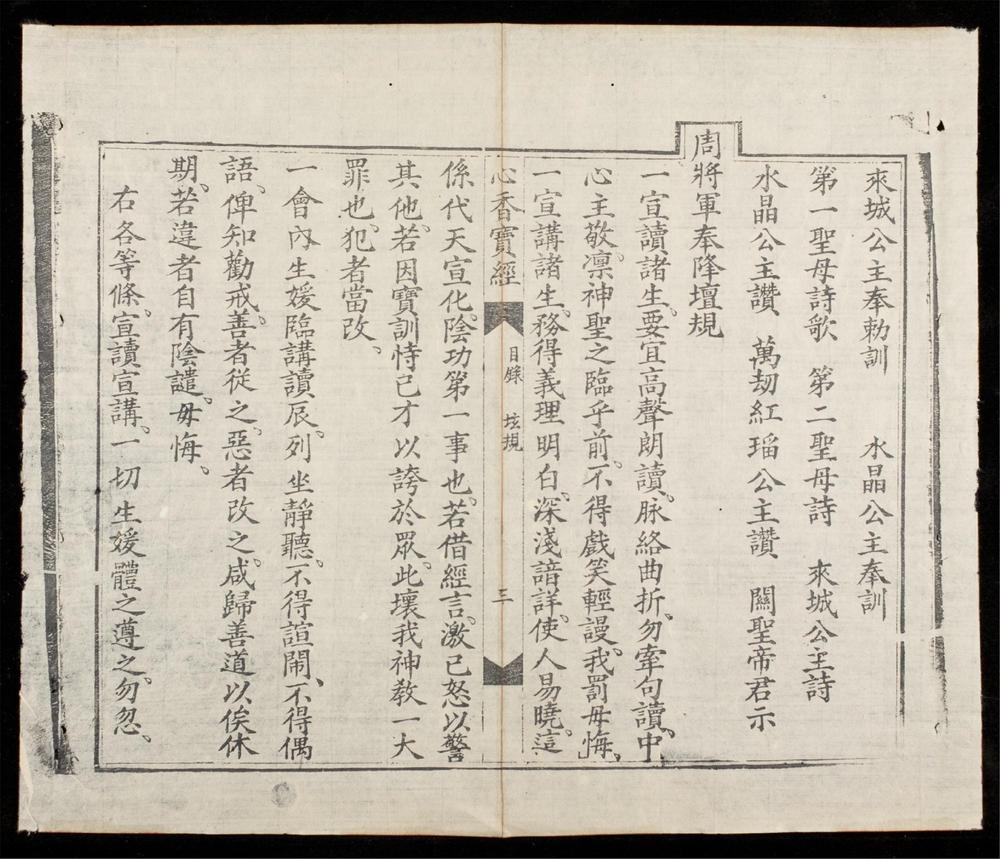 來城公主奉勅訓　水晶公主奉訓
第一聖母詩歌　第二聖母詩　來城公主詩
水晶公主讚　萬刼紅瑙公主讚　關聖帝君示
周將軍奉降壇規
一宣讀諸生、要宜高聲朗讀、脉絡曲折、勿牽句讀、中
心主敬、凛神聖之臨乎前、不得戲笑輕謾、我罰毋悔、
一宣講諸生、務得義理明白、深淺諳詳、使人易曉、這
心香寶經　目錄　坛規　三
係代天宣化、陰功第一事也、若借經言、激已怒以警
其他、若因寶訓恃己才以誇於眾、此壞我神教一大
罪也、犯者當改、
一會內生媛臨講讀辰、列坐靜聽、不得諠鬧、不得偶
語、俾知勸戒、善者從之、惡者改之、咸歸善道以俟休
期、若違者自有陰譴、毋悔、
右各等條、宣讀宣講、一切生媛體之遵之、勿忽、